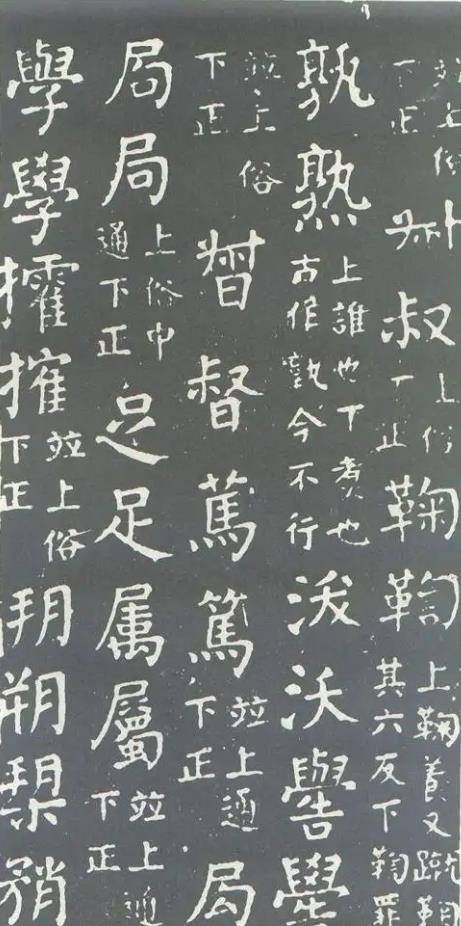 並上俗下正叔上俗下正鞠鞫上鞠養又蹴鞠其六反下鞫罪
孰熟上誰也下煮也古作孰今不行沃
並上俗下正督篤並上通下正局
局局上俗中通下正足足属屬並上通下正
學學㩁搉並上俗下正朔